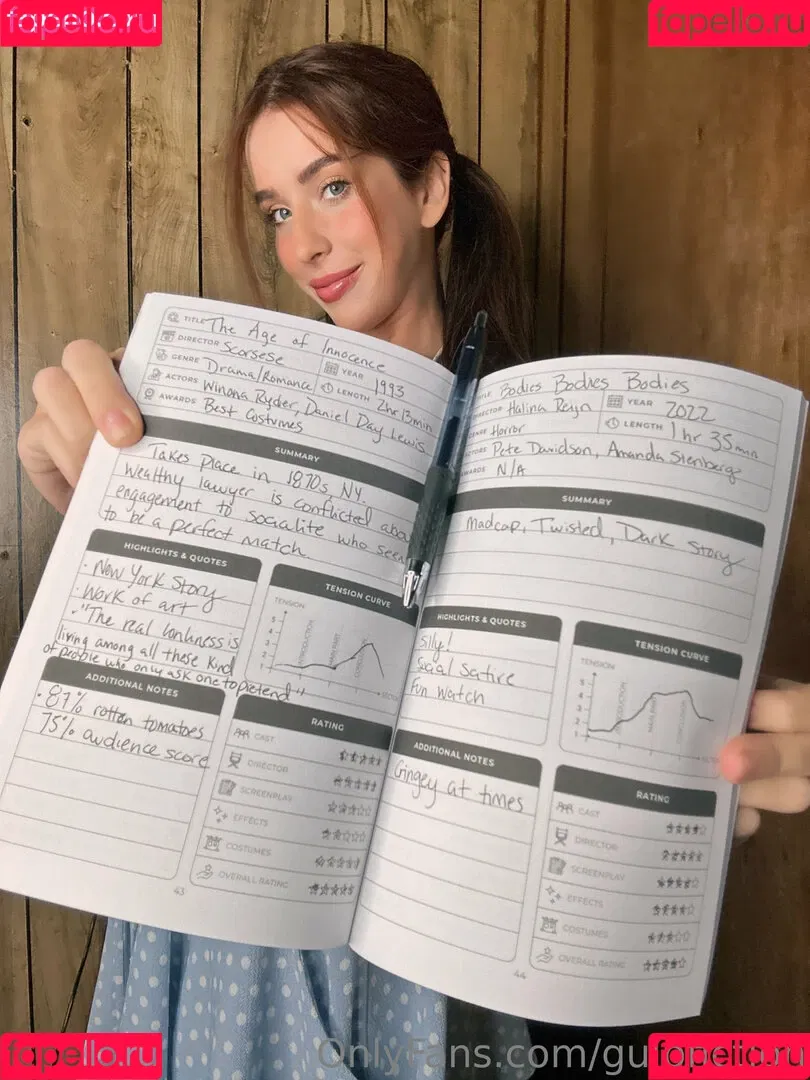 fapello.ru
fapello.ru
TITLE The Age of Innocence
DIRECTOR Scorsese
GENRE Drama/Romance
YEAR 1993
ACTORS Winona Ryder, Daniel Day Lewis
LENGTH 2hr 13min
AWARDS Best Costumes
SUMMARY
Takes Place in 1870s, NY.
Wealthy lawyer is conflicted
engagement to socialite who
to be a perfect match
HIGHLIGHTS & QUOTES
· New York Story
· Work of art
· "The real lonliness is
living among all these kind
of people who only ask one to pretend"
TENSION CURVE
TENSION
5
4
3
2
1
ADDITIONAL NOTES
· 87% rotten tomatoes
75% audience score
RATING
CAST
DIRECTOR
SCREENPLAY
EFFECTS
COSTUMES
OVERALL RATING
43
Bodies Bodies Bodies
Halina Reijn
YEAR 2022
Horror
LENGTH 1 hr 35 min
Pete Davidson, Amanda Stenberg
N/A
SUMMARY
Madcap, Twisted, Dark Story
HIGHLIGHTS & QUOTES
Silly!
Social Satire
Fun Watch
TENSION CURVE
TENSION
5
4
3
2
1
ADDITIONAL NOTES
Cringey at times
RATING
CAST
DIRECTOR
SCREENPLAY
EFFECTS
COSTUMES
OVERALL RATING
44
fapello.ru
OnlyFans.com/
fapello.ru